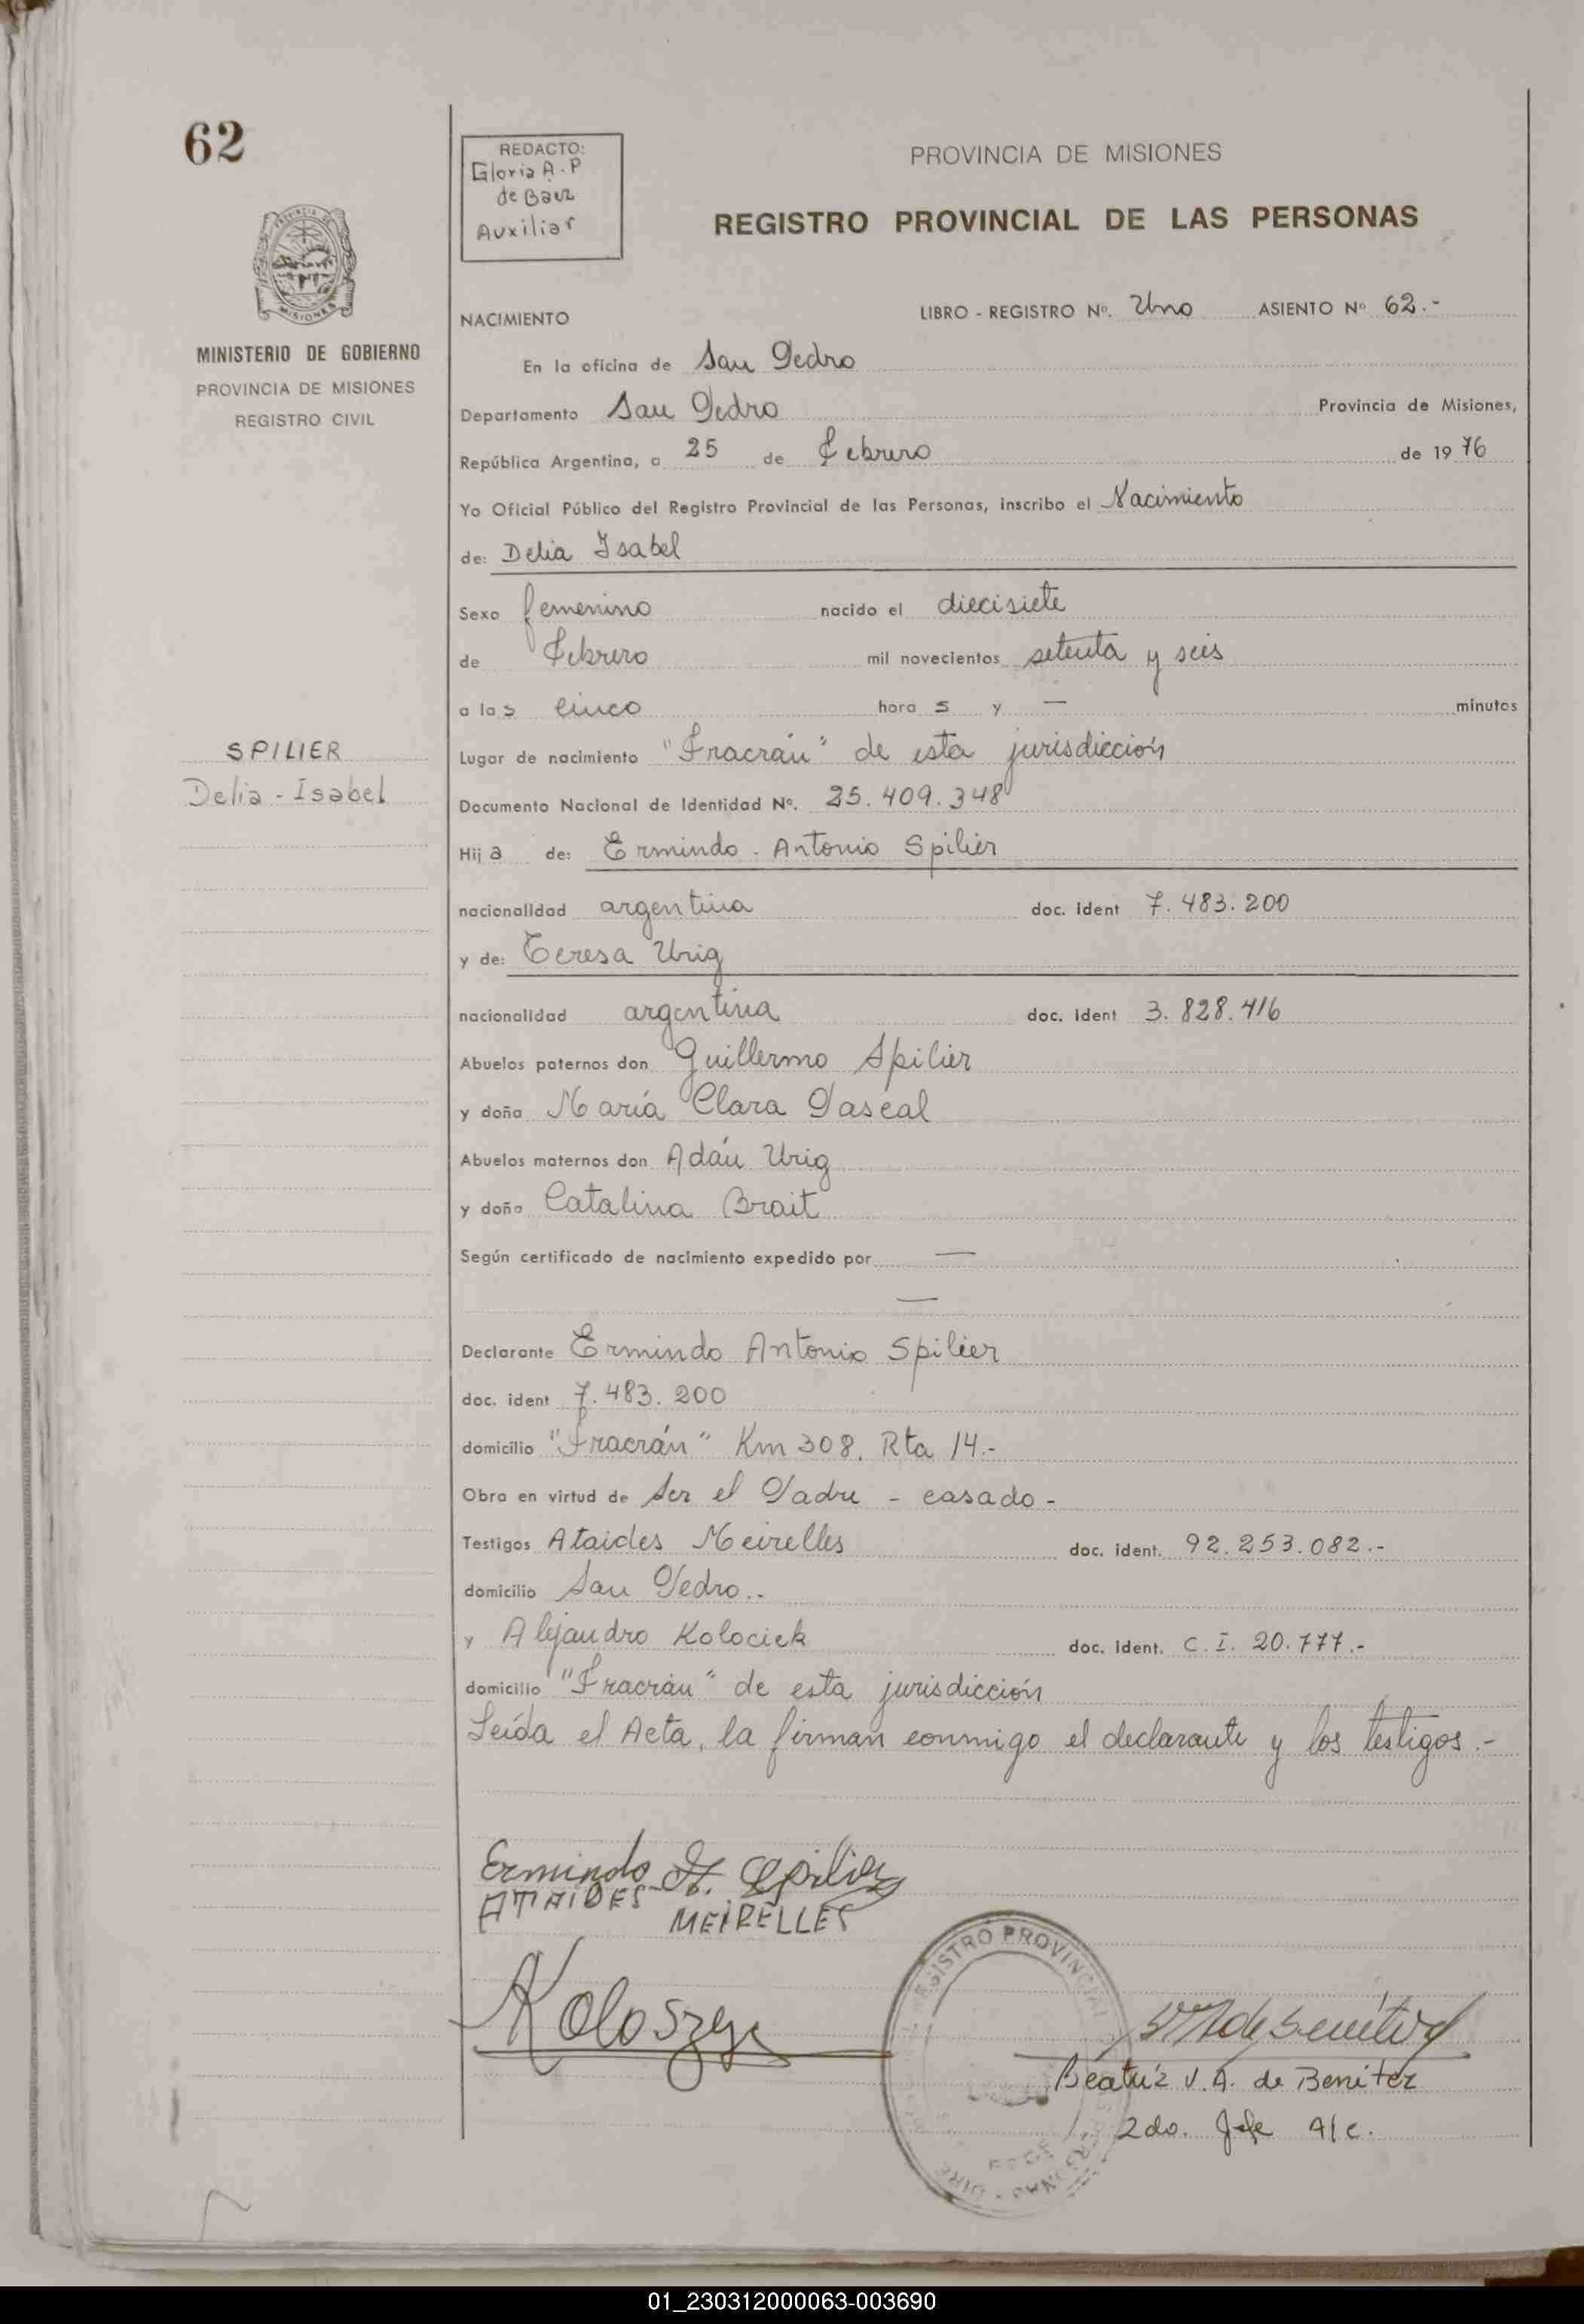 62
REDACTO:
Gloria A. P
de Baez
Auxiliar
PROVINCIA DE MISIONES
REGISTRO PROVINCIAL DE LAS PERSONAS
MISIONES
MINISTERIO DE GOBIERNO
PROVINCIA DE MISIONES
REGISTRO CIVIL
NACIMIENTO LIBRO - REGISTRO Nº. Uno ASIENTO Nº 62.-
En la oficina de San Pedro
Departamento San Pedro Provincia de Misiones,
República Argentina, a 25 de Febrero de 1976
Yo Oficial Público del Registro Provincial de las Personas, inscribo el Nacimiento
de: Delia Isabel
Sexo femenino nacido el diecisiete
de Febrero mil novecientos setenta y seis
a las cinco horas y — minutos
SPILIER
Delia - Isabel
Lugar de nacimiento "Fracrán" de esta jurisdicción
Documento Nacional de Identidad Nº. 25.409.348
Hija de: Ermindo - Antonio Spilier
nacionalidad argentina doc. ident 7.483.200
y de: Teresa Urig
nacionalidad argentina doc. ident 3.828.416
Abuelos paternos don Guillermo Spilier
y doña María Clara Pascal
Abuelos maternos don Adán Urig
y doña Catalina Brait
Según certificado de nacimiento expedido por —
—
Declarante Ermindo Antonio Spilier
doc. ident 7.483.200
domicilio "Fracrán" Km 308. Rta 14.-
Obra en virtud de Ser el Padre - casado -
Testigos Ataides Meirelles doc. ident. 92.253.082.-
domicilio San Pedro..
y Alejandro Kolociek doc. ident. C.I. 20.777.-
domicilio "Fracrán" de esta jurisdicción
Leída el Acta, la firman conmigo el declarante y los testigos.-
Ermindo A. Spilier
ATAIDES MEIRELLES
REGISTRO PROVINCIAL DE
Beatriz V. A. de Benitez
2do. Jefe A/c.
01_230312000063-003690